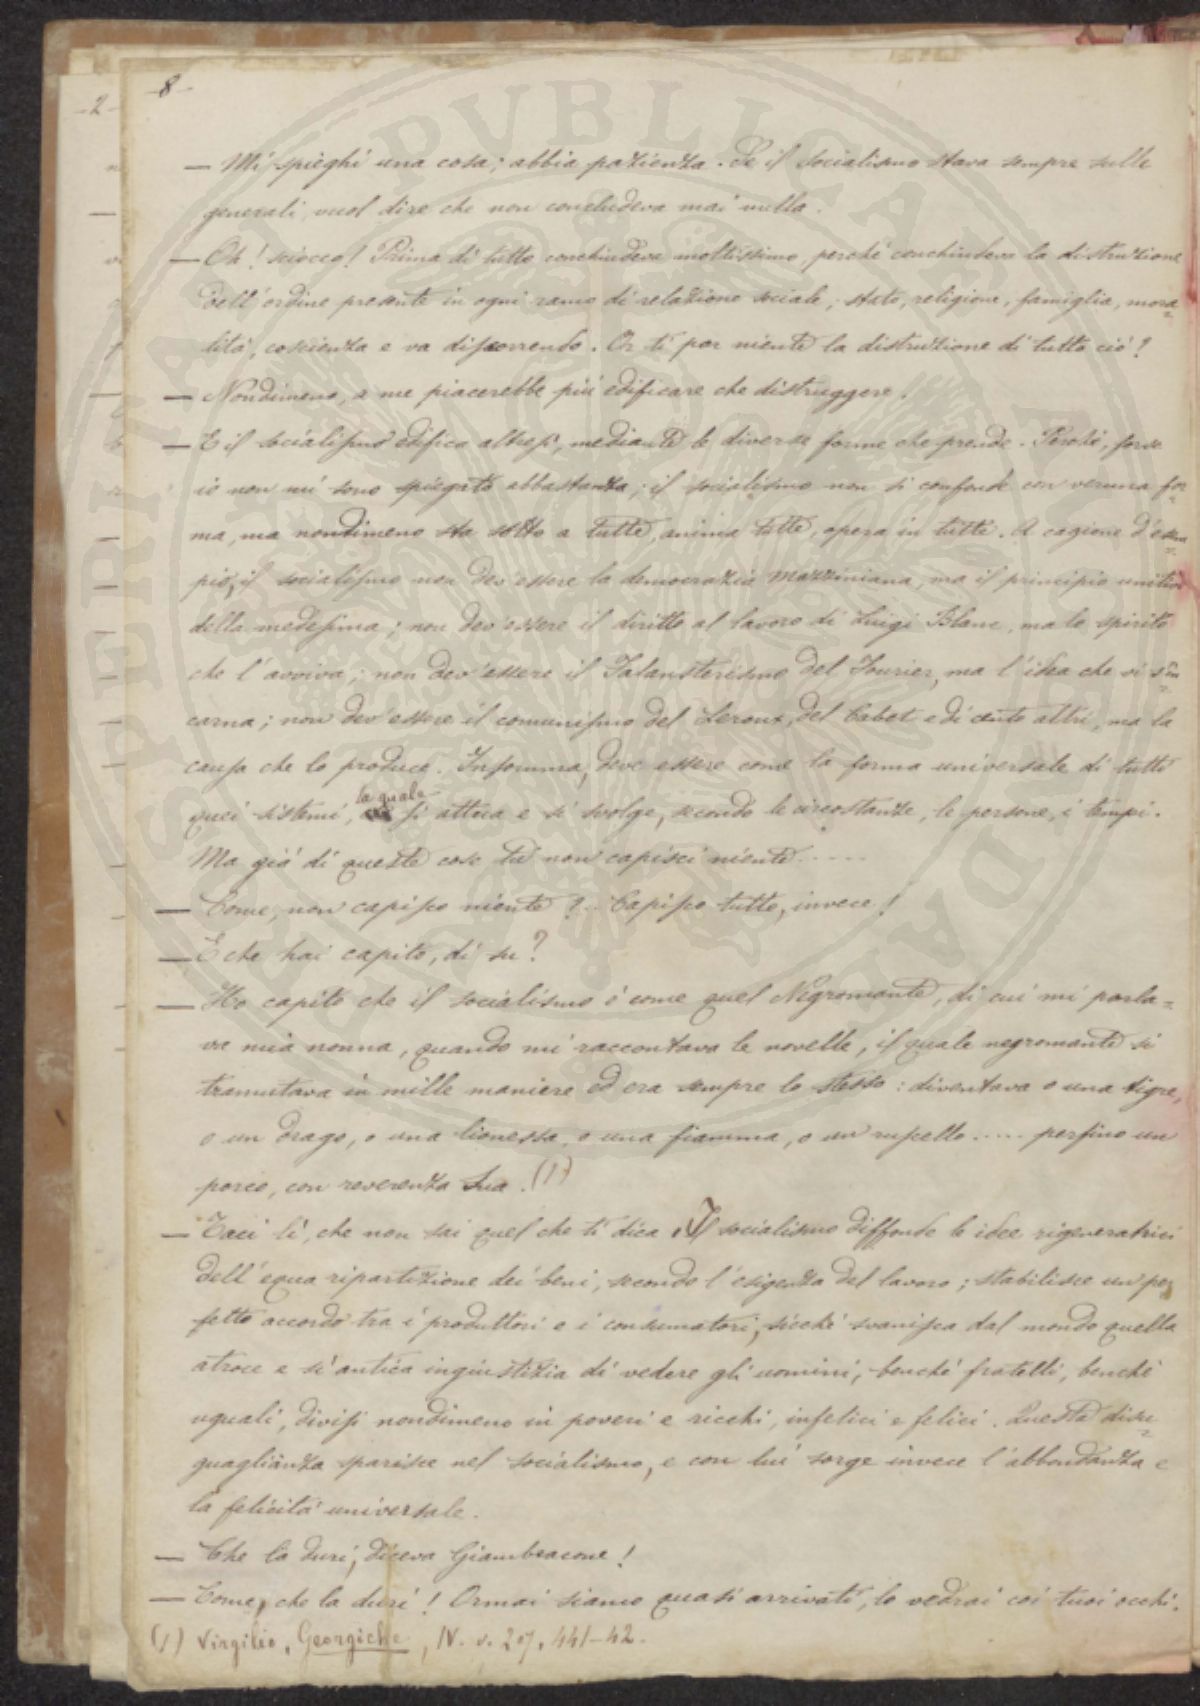 -8-
-2-
— Mi spieghi una cosa; abbia pazienza. Se il socialismo stava sempre sulle
generali, vuol dire che non concludeva mai nulla.
— Oh! sciocco! Prima di tutto conchiudeva moltissimo, perché conchiudeva la distruzione
dell'ordine presente in ogni ramo di relazione sociale; stato, religione, famiglia, mora=
lità, coscienza e va discorrendo. Or ti par niente la distruzione di tutto ciò?
— Nondimeno, a me piacerebbe più edificare che distruggere.
— E il socialismo edifica altresì, mediante le diverse forme che prende. Perché, forse
io non mi sono spiegato abbastanza; il socialismo non si confonde con veruna for=
ma, ma nondimeno sta sotto a tutte, anima tutte, opera in tutte. A cagione d'esem=
pio, il socialismo non dev'essere la democrazia mazziniana, ma il principio unitivo
della medesima; non dev'essere il diritto al lavoro di Luigi Blanc, ma lo spirito
che l'avviva; non dev'essere il Falansterismo del Fourier, ma l'idea che vi s'in=
carna; non dev'essere il comunismo del Leroux, del Cabet e di cento altri, ma la
causa che lo produce. Insomma, deve essere come la forma universale di tutti
quei sistemi, la quale si attua e si svolge, secondo le circostanze, le persone, i tempi.
Ma già di queste cose tu non capisci niente.....
— Come, non capisco niente?.. Capisco tutto, invece!
— E che hai capito, di su?
— Ho capito che il socialismo è come quel Negromante, di cui mi parla=
va mia nonna, quando mi raccontava le novelle, il quale negromante si
tramutava in mille maniere ed era sempre lo stesso: diventava o una tigre,
o un drago, o una lionessa, o una fiamma, o un ruscello..... persino un
porco, con reverenza Sua. (1)
— Taci lì, che non sai quel che ti dica. Il socialismo diffonde le idee rigeneratrici
dell'equa ripartizione dei beni, secondo l'esigenza del lavoro; stabilisce un per
fetto accordo tra i produttori e i consumatori, sicché svanisca dal mondo quella
atroce e sì antica ingiustizia di vedere gli uomini, benché fratelli, benché
uguali, divisi nondimeno in poveri e ricchi, infelici e felici. Questa disu=
guaglianza sparisce nel socialismo, e con lui sorge invece l'abbondanza e
la felicità universale.
— Che la duri, diceva Giambracone!
— Come, che la duri! Ormai siamo quasi arrivati, lo vedrai coi tuoi occhi.
(1) Virgilio, Georgiche, IV. v. 207, 441-42.
SPERITATI PVBLICAE VTENDA